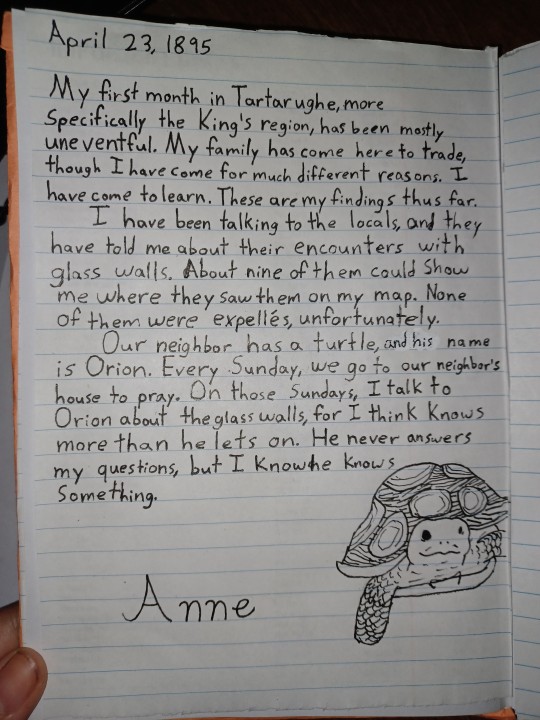 April 23, 1895
My first month in Tartarughe, more
Specifically the King's region, has been mostly
uneventful. My family has come here to trade,
though I have come for much different reasons. I
have come to learn. These are my findings thus far.
I have been talking to the locals, and they
have told me about their encounters with
glass walls. About nine of them could Show
me where they saw them on my map. None
of them were expellés, unfortunately.
Our neighbor has a turtle, and his name
is Orion. Every Sunday, we go to our neighbor's
house to pray. On those Sundays, I talk to
Orion about the glass walls, for I think Knows
more than he lets on. He never answers
my questions, but I Know he Knows
Something.
Anne